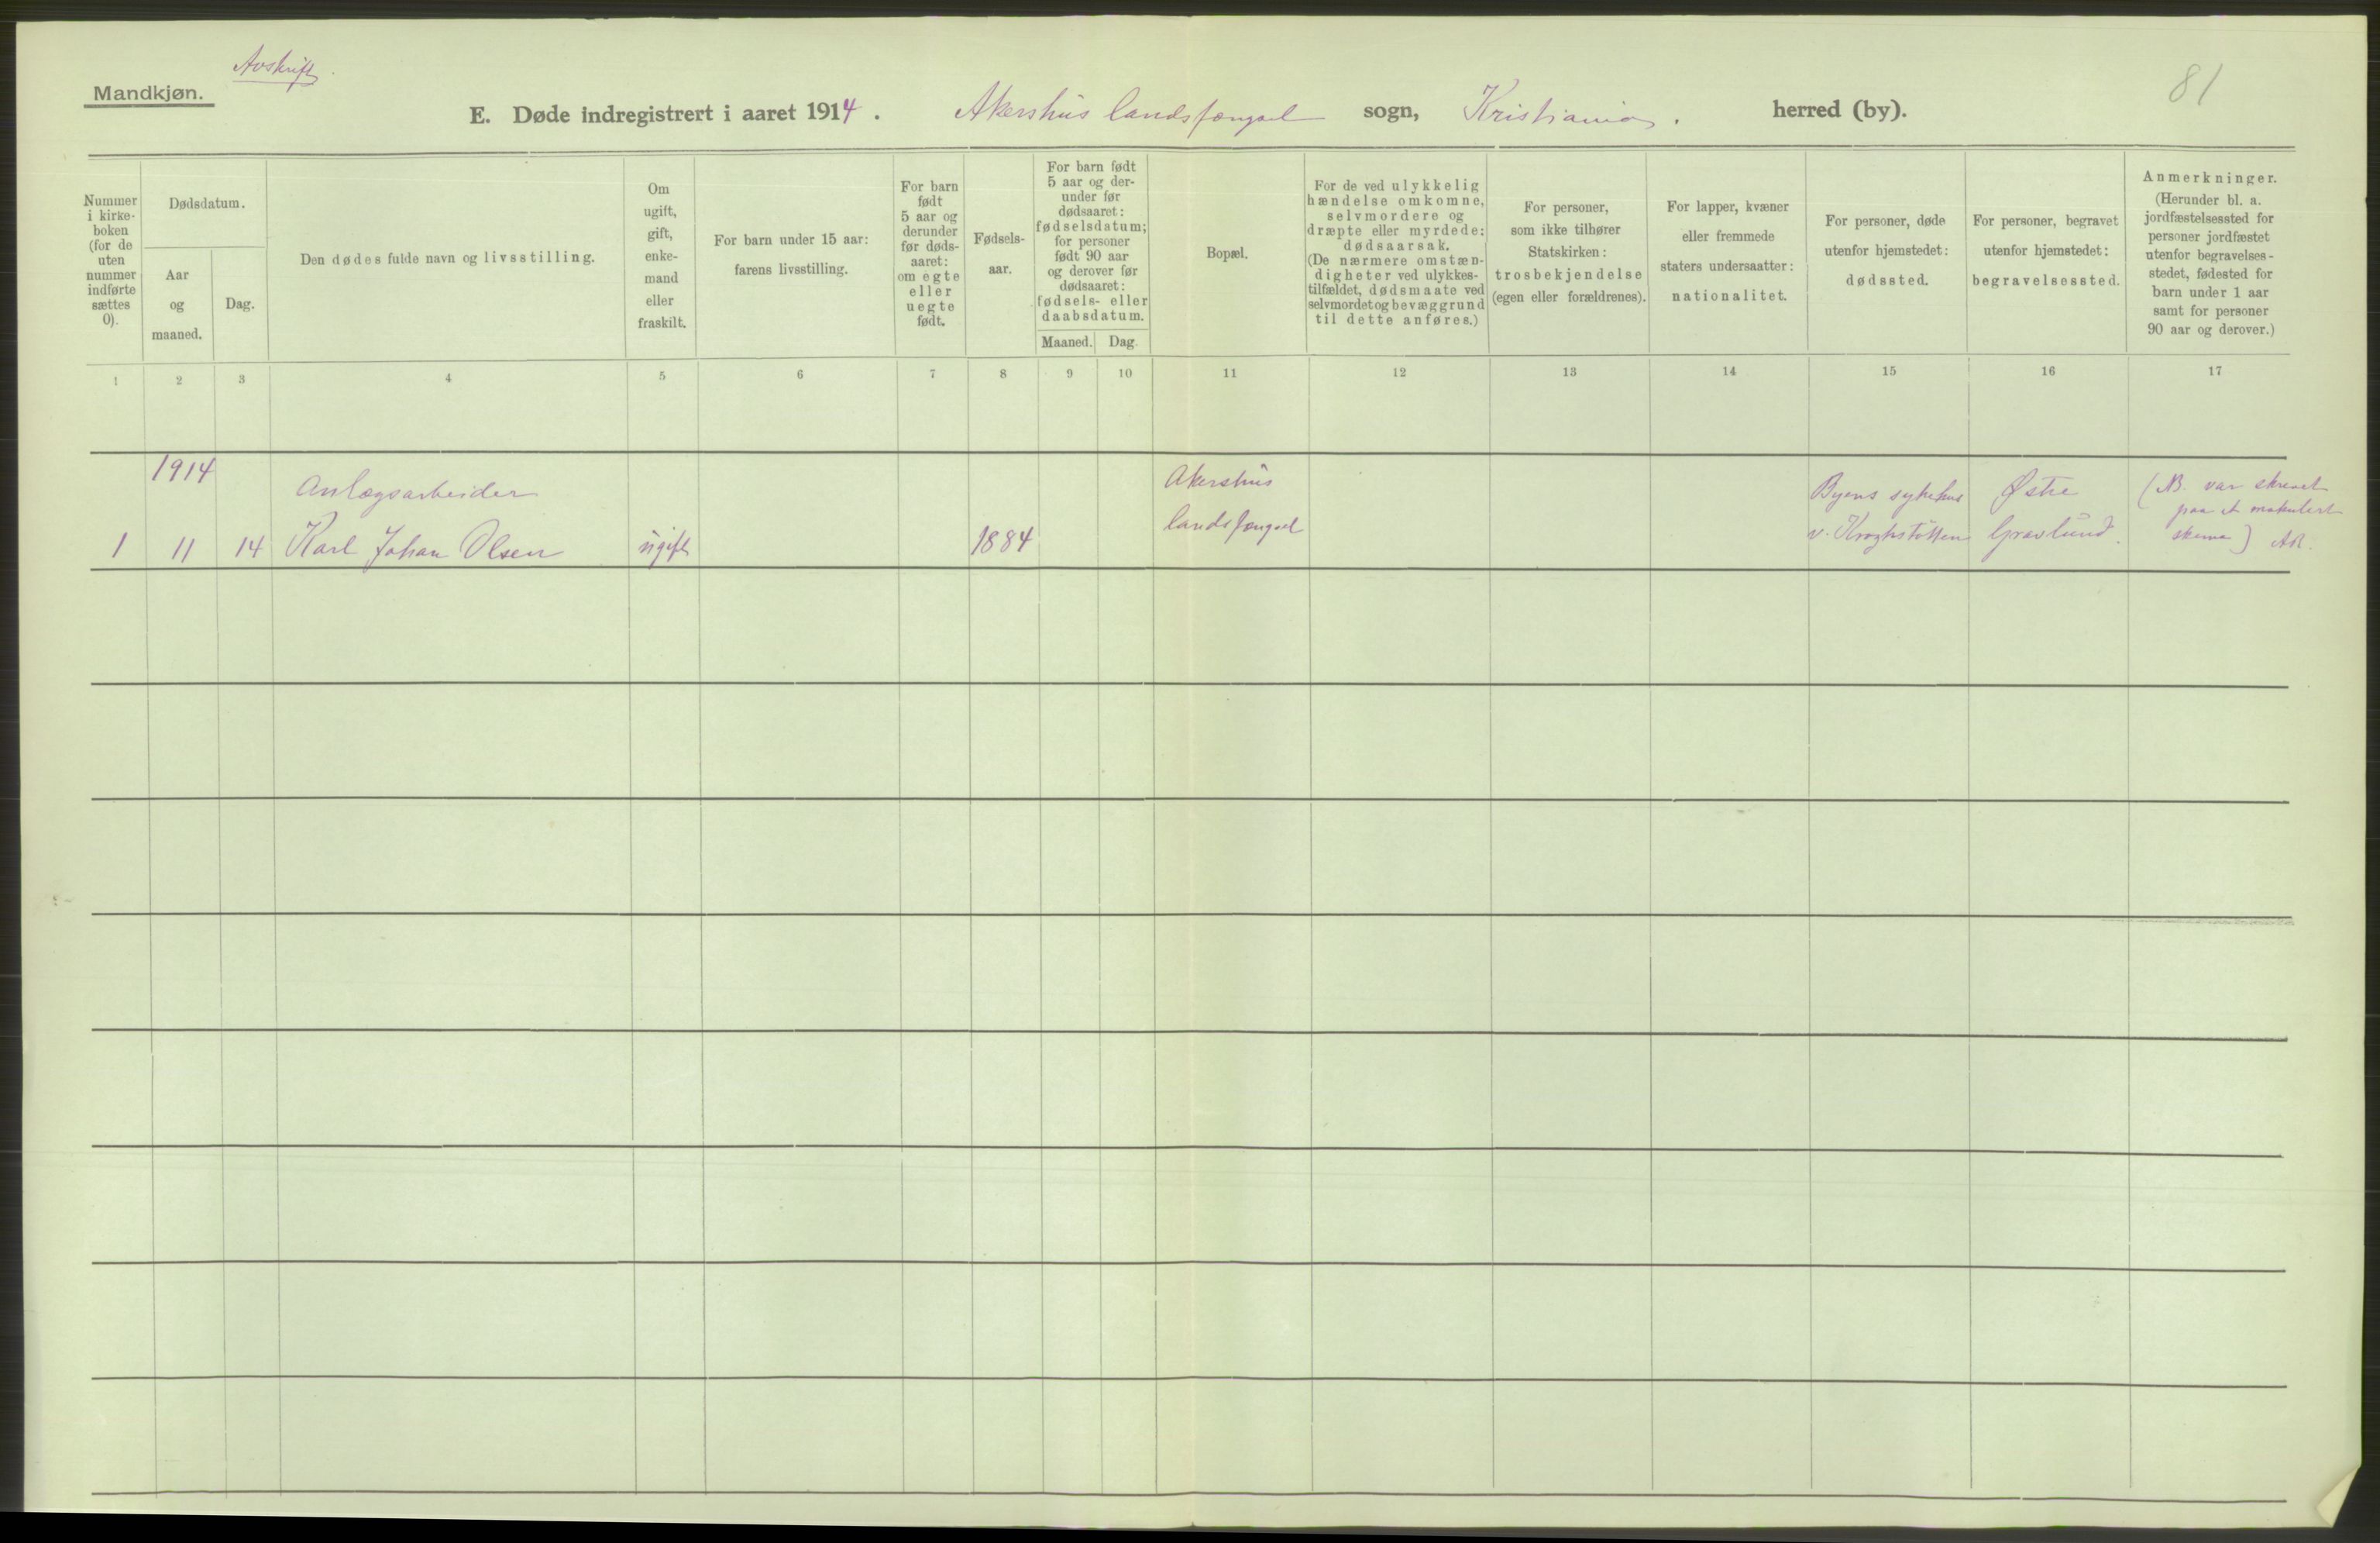 Avskrift.
Mandkjøn.
81
E. Døde indregistrert i aaret 1914. Akershus landsfængsel sogn, Kristiania. herred (by).
Nummer
i kirke-
boken
(for de
uten
nummer
indførte
sættes
0).
Dødsdatum.
Aar
og
maaned.
Dag.
Den dødes fulde navn og livsstilling.
Om
ugift,
gift,
enke-
mand
eller
fraskilt.
For barn under 15 aar:
farens livsstilling.
For barn
født
5 aar og
derunder
før døds-
aaret:
om egte
eller
uegte
født.
Fødsels-
aar.
For barn født
5 aar og der-
under før
dødsaaret:
fødselsdatum;
for personer
født 90 aar
og derover før
dødsaaret:
fødsels- eller
daabsdatum.
Maaned.
Dag.
Bopæl.
For de ved ulykkelig
hændelse omkomne,
selvmordere og
dræpte eller myrdede:
dødsaarsak.
(De nærmere omstæn-
digheter ved ulykkes-
tilfældet, dødsmaate ved
selvmordet og bevæggrund
til dette anføres.)
For personer,
som ikke tilhører
Statskirken:
trosbekjendelse
(egen eller forældrenes).
For lapper, kvæner
eller fremmede
staters undersaatter:
nationalitet.
For personer, døde
utenfor hjemstedet:
dødssted.
For personer, begravet
utenfor hjemstedet:
begravelsessted.
Anmerkninger.
(Herunder bl. a.
jordfæstelsessted for
personer jordfæstet
utenfor begravelses-
stedet, fødested for
barn under 1 aar
samt for personer
90 aar og derover.)
1 2 3 4 5 6 7 8 9 10 11 12 13 14 15 16 17
1914
1 11 14
Anlægsarbeider
Karl Johan Olsen
ugift
1884
Akershus
landsfængsel
Byens sykehus
v. Kroghstøtten
Østre
Gravlund.
(NB. var skrevet
paa et makulert
skema) AR.